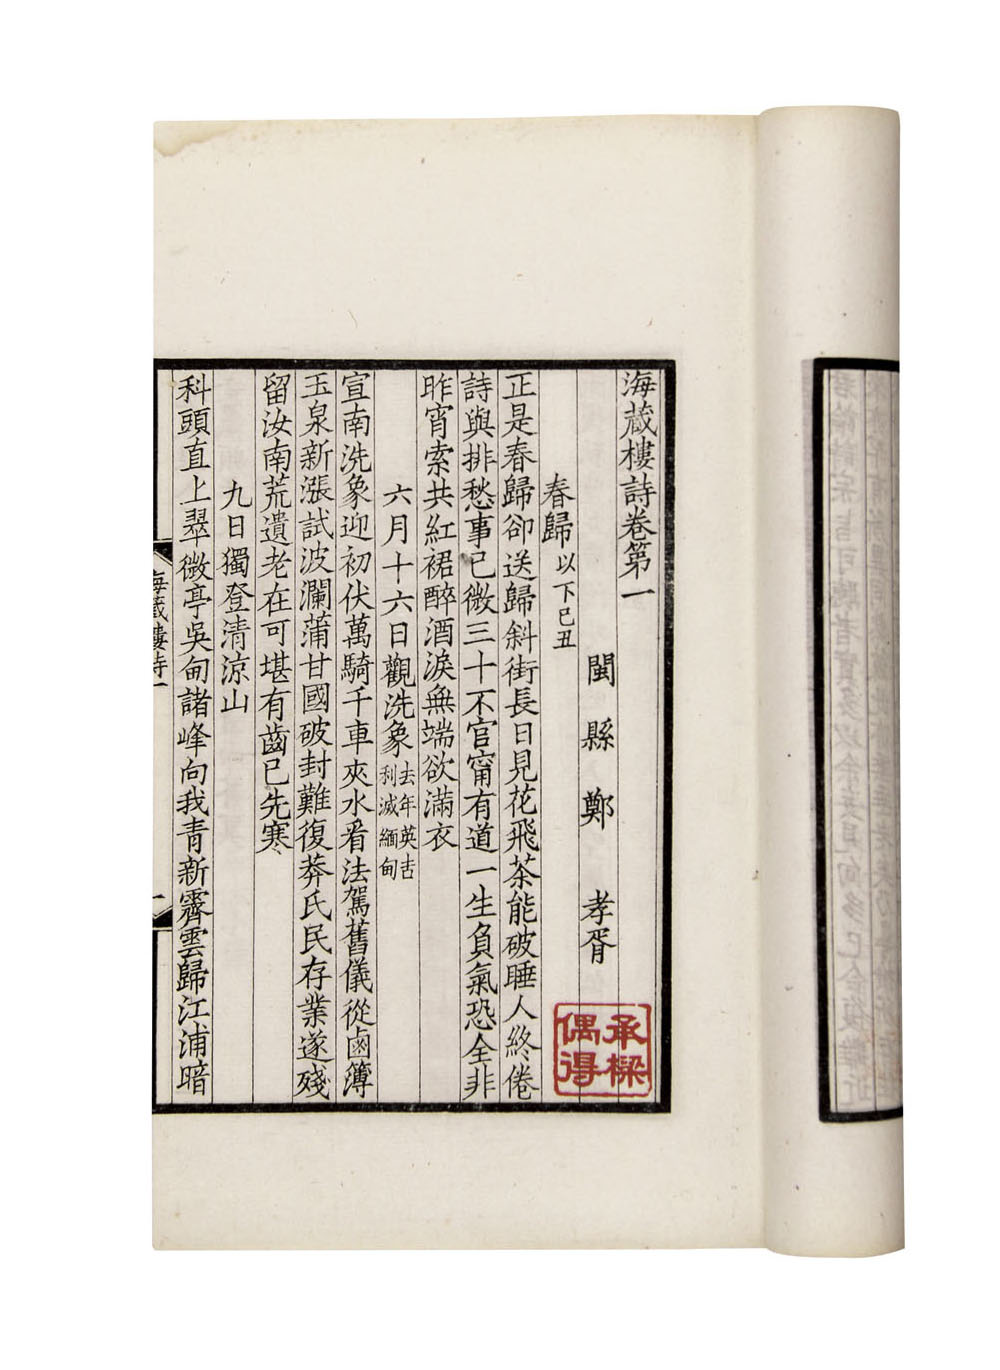 海藏樓詩卷第一
閩縣鄭孝胥
春歸以下己丑
正是春歸卻送歸斜街長日見花飛茶能破睡人終倦
詩與排愁事已微三十不官甯有道一生負氣恐全非
昨宵索共紅裙醉酒淚無端欲滿衣
六月十六日觀洗象去年英吉利滅緬甸
宣南洗象迎初伏萬騎千車夾水看法駕舊儀從鹵簿
玉泉新漲試波瀾蒲甘國破封難復莽氏民存業遂殘
留汝南荒遺老在可堪有齒已先寒
九日獨登清涼山
科頭直上翠微亭吳甸諸峰向我青新霽雲歸江浦暗
海藏樓詩一
一
承樑
偶得